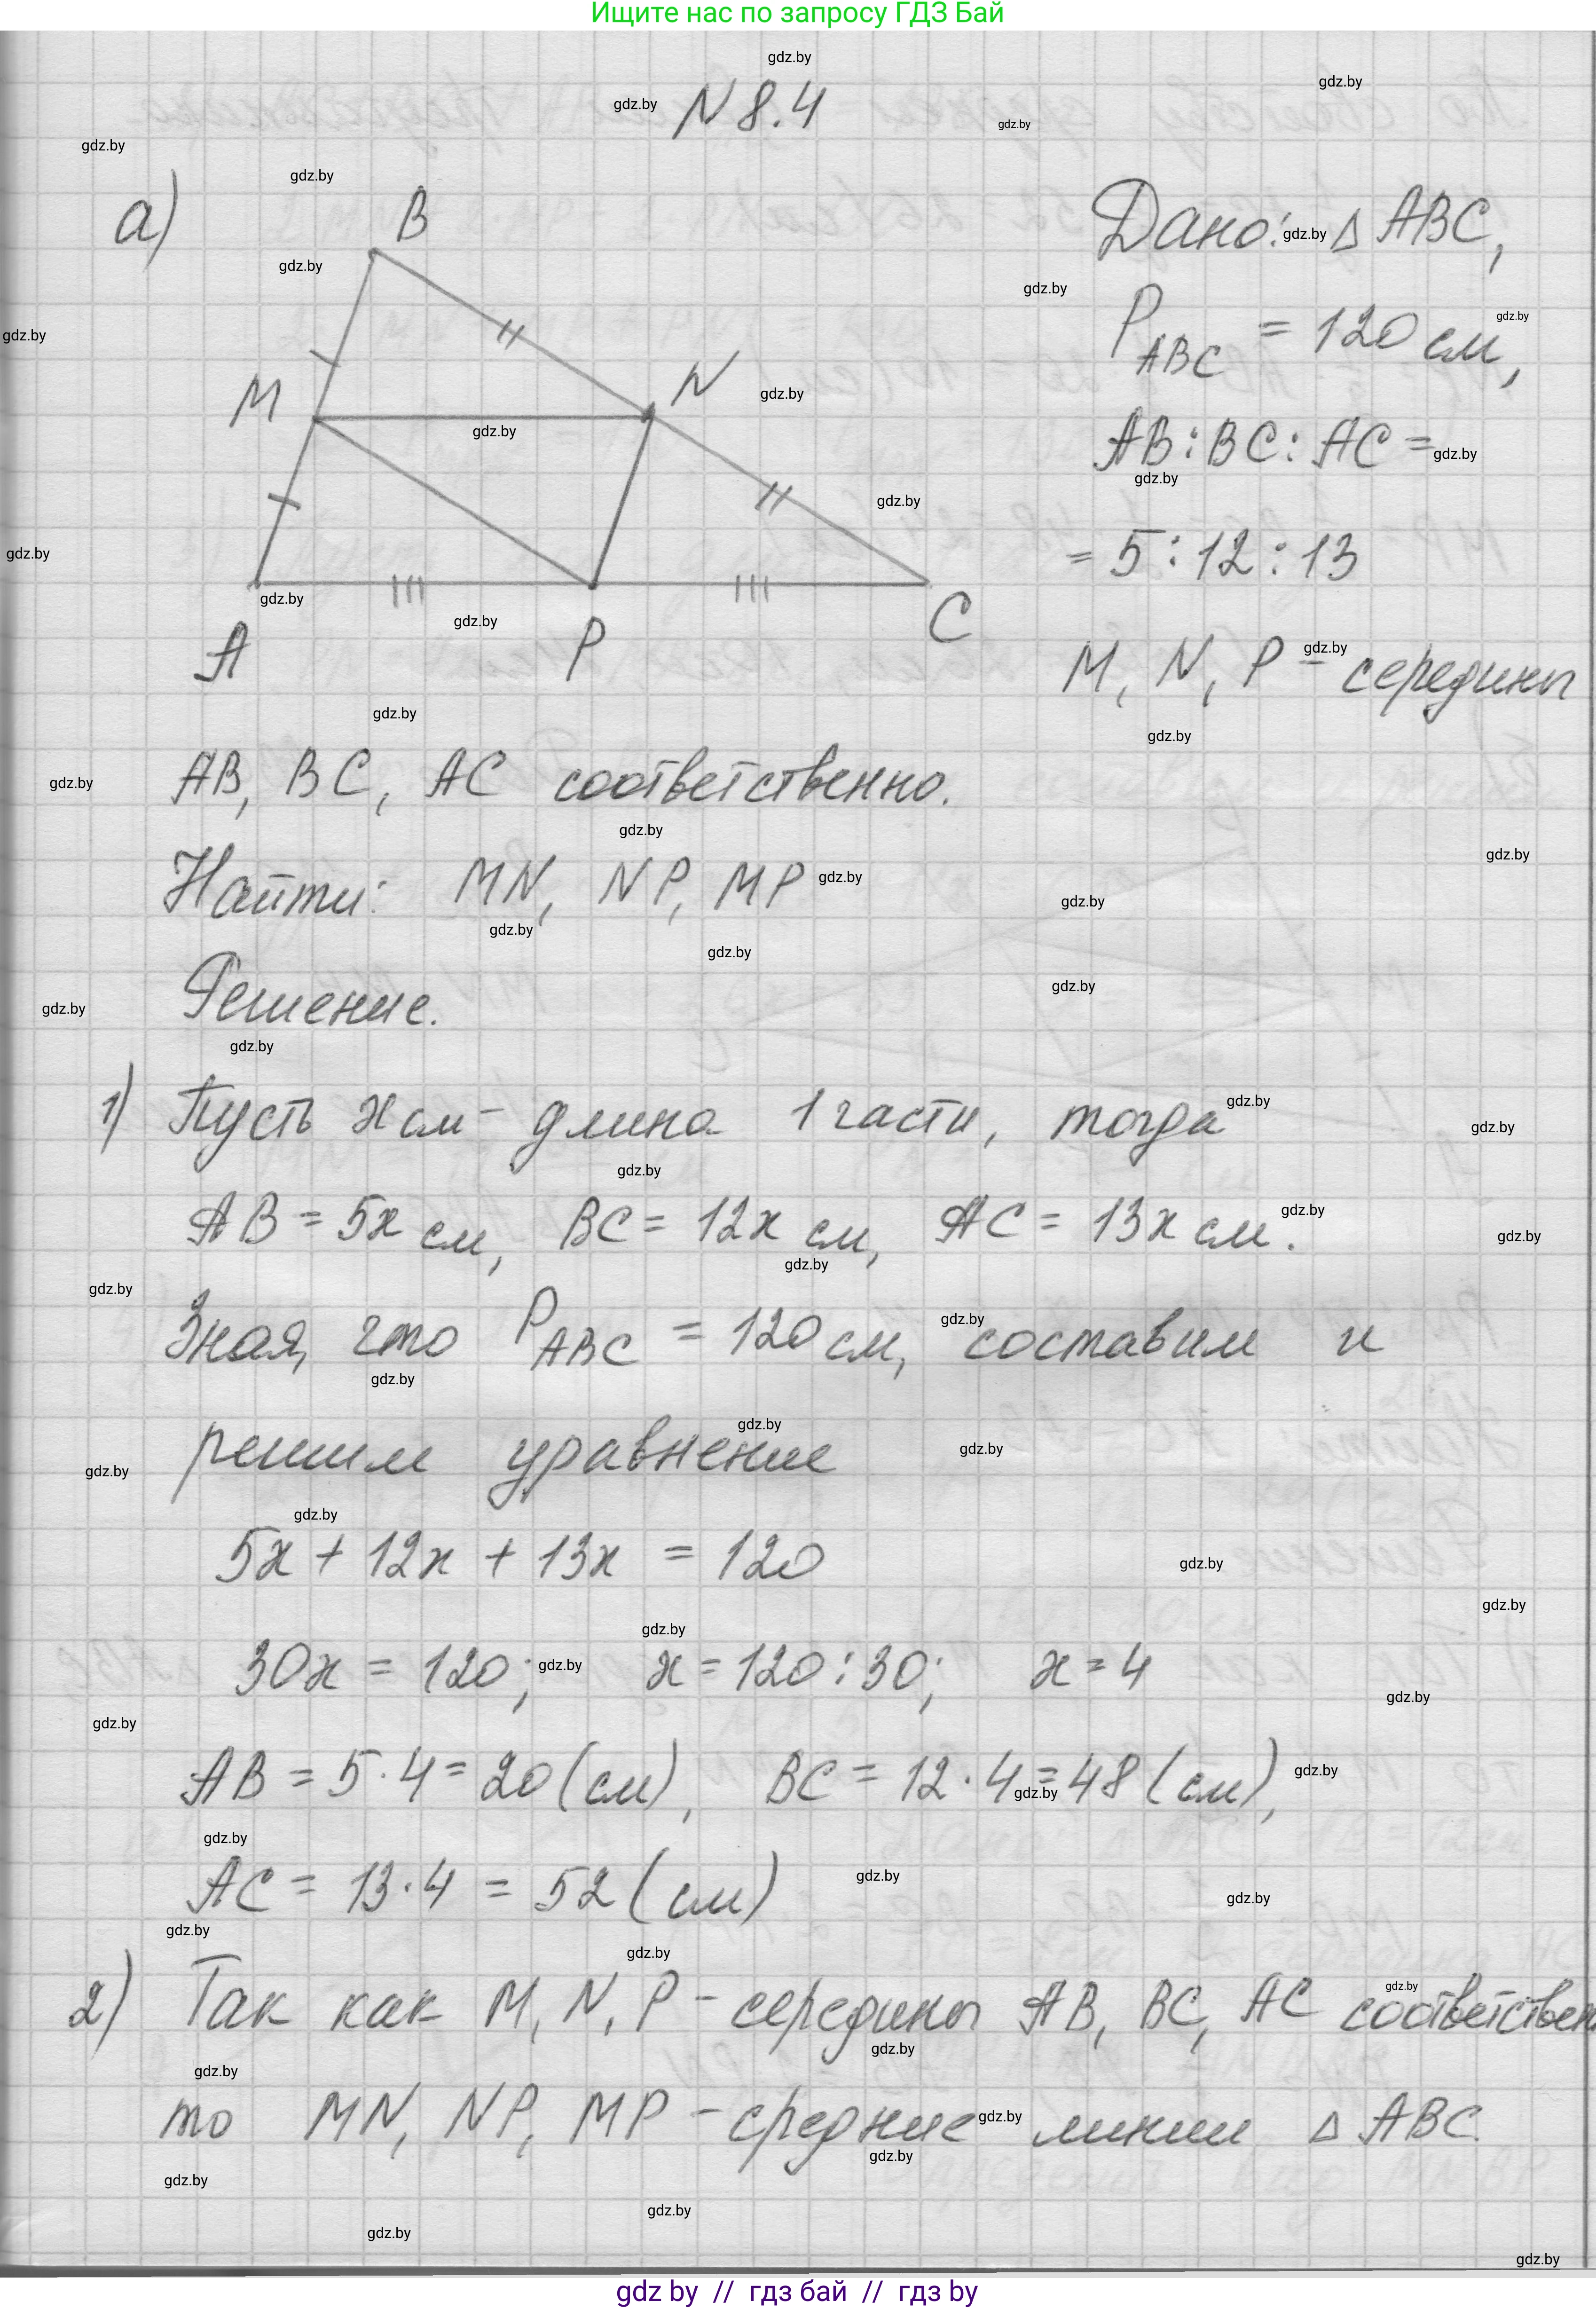 Ищите нас по запросу ГДЗ Бай
N 8.4
а)
B
M
N
A
P
C
Дано: △ ABC,
P ABC = 120 см,
AB : BC : AC =
= 5 : 12 : 13
M, N, P - середины
AB, BC, AC соответственно.
Найти: MN, NP, MP
Решение.
1) Пусть x см - длина 1 части, тогда
AB = 5x см, BC = 12x см, AC = 13x см.
Зная, что P ABC = 120 см, составим и
решим уравнение
5x + 12x + 13x = 120
30x = 120; x = 120 : 30; x = 4
AB = 5 · 4 = 20 (см), BC = 12 · 4 = 48 (см),
AC = 13 · 4 = 52 (см)
2) Так как M, N, P - середины AB, BC, AC соответствен
то MN, NP, MP - средние линии △ ABC.
gdz.by
gdz by // гдз бай // гдз by